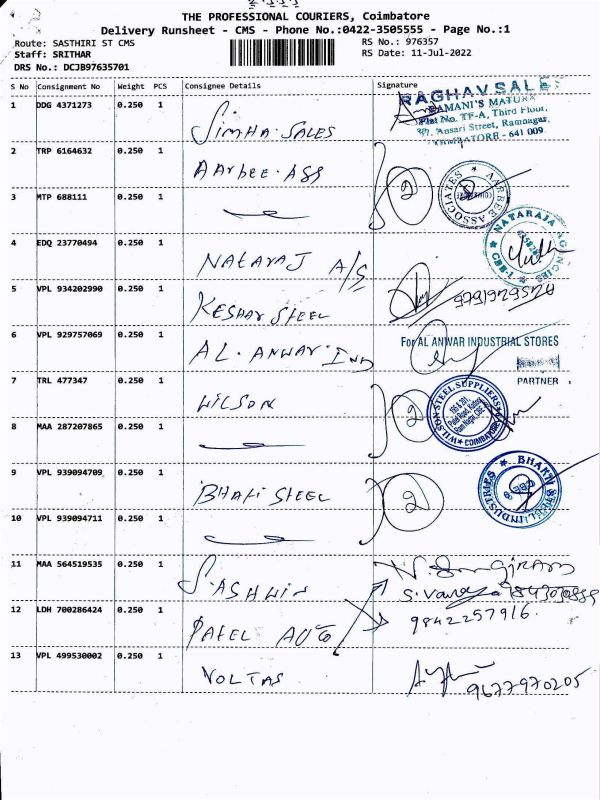 THE PROFESSIONAL COURIERS, Coimbatore
Delivery Runsheet - CMS - Phone No.:0422-3505555 - Page No.:1
Route: SASTHIRI ST CMS
Staff: SRITHAR
DRS No.: DCJB97635701
RS No.: 976357
RS Date: 11-Jul-2022
S No Consignment No Weight PCS Consignee Details Signature
1 DDG 4371273 0.250 1 SIMHA SALES
RAGHAV SALE
RAMANI'S
Flat No. TF-A, Third Floor,
Ansari Street, Ramnagar,
COIMBATORE - 641 009.
2 TRP 6164632 0.250 1 AARBEE. ASS
2
AARBEE ASSOCIATES
3 MTP 688111 0.250 1
4 EDQ 23770494 0.250 1 NATARAJ A/S
NATARAJA AGENCIES
CBE-1
5 VPL 934202990 0.250 1 KESHAV STEEL
9791929524
6 VPL 929757069 0.250 1 AL. ANWAR IND
For AL ANWAR INDUSTRIAL STORES
PARTNER
7 TRL 477347 0.250 1 WILSON
2
WILSON STEEL SUPPLIERS
COIMBATORE
8 MAA 287207865 0.250 1
9 VPL 939094709 0.250 1 BHAKTI STEEL
2
BHAKTI STEEL INDUSTRIES
CBE-9
10 VPL 939094711 0.250 1
11 MAA 564519535 0.250 1 S. ASHWIN
12 LDH 700286424 0.250 1 PATEL AUTO
9842257916
13 VPL 499530002 0.250 1 VOLTAS
9677970205